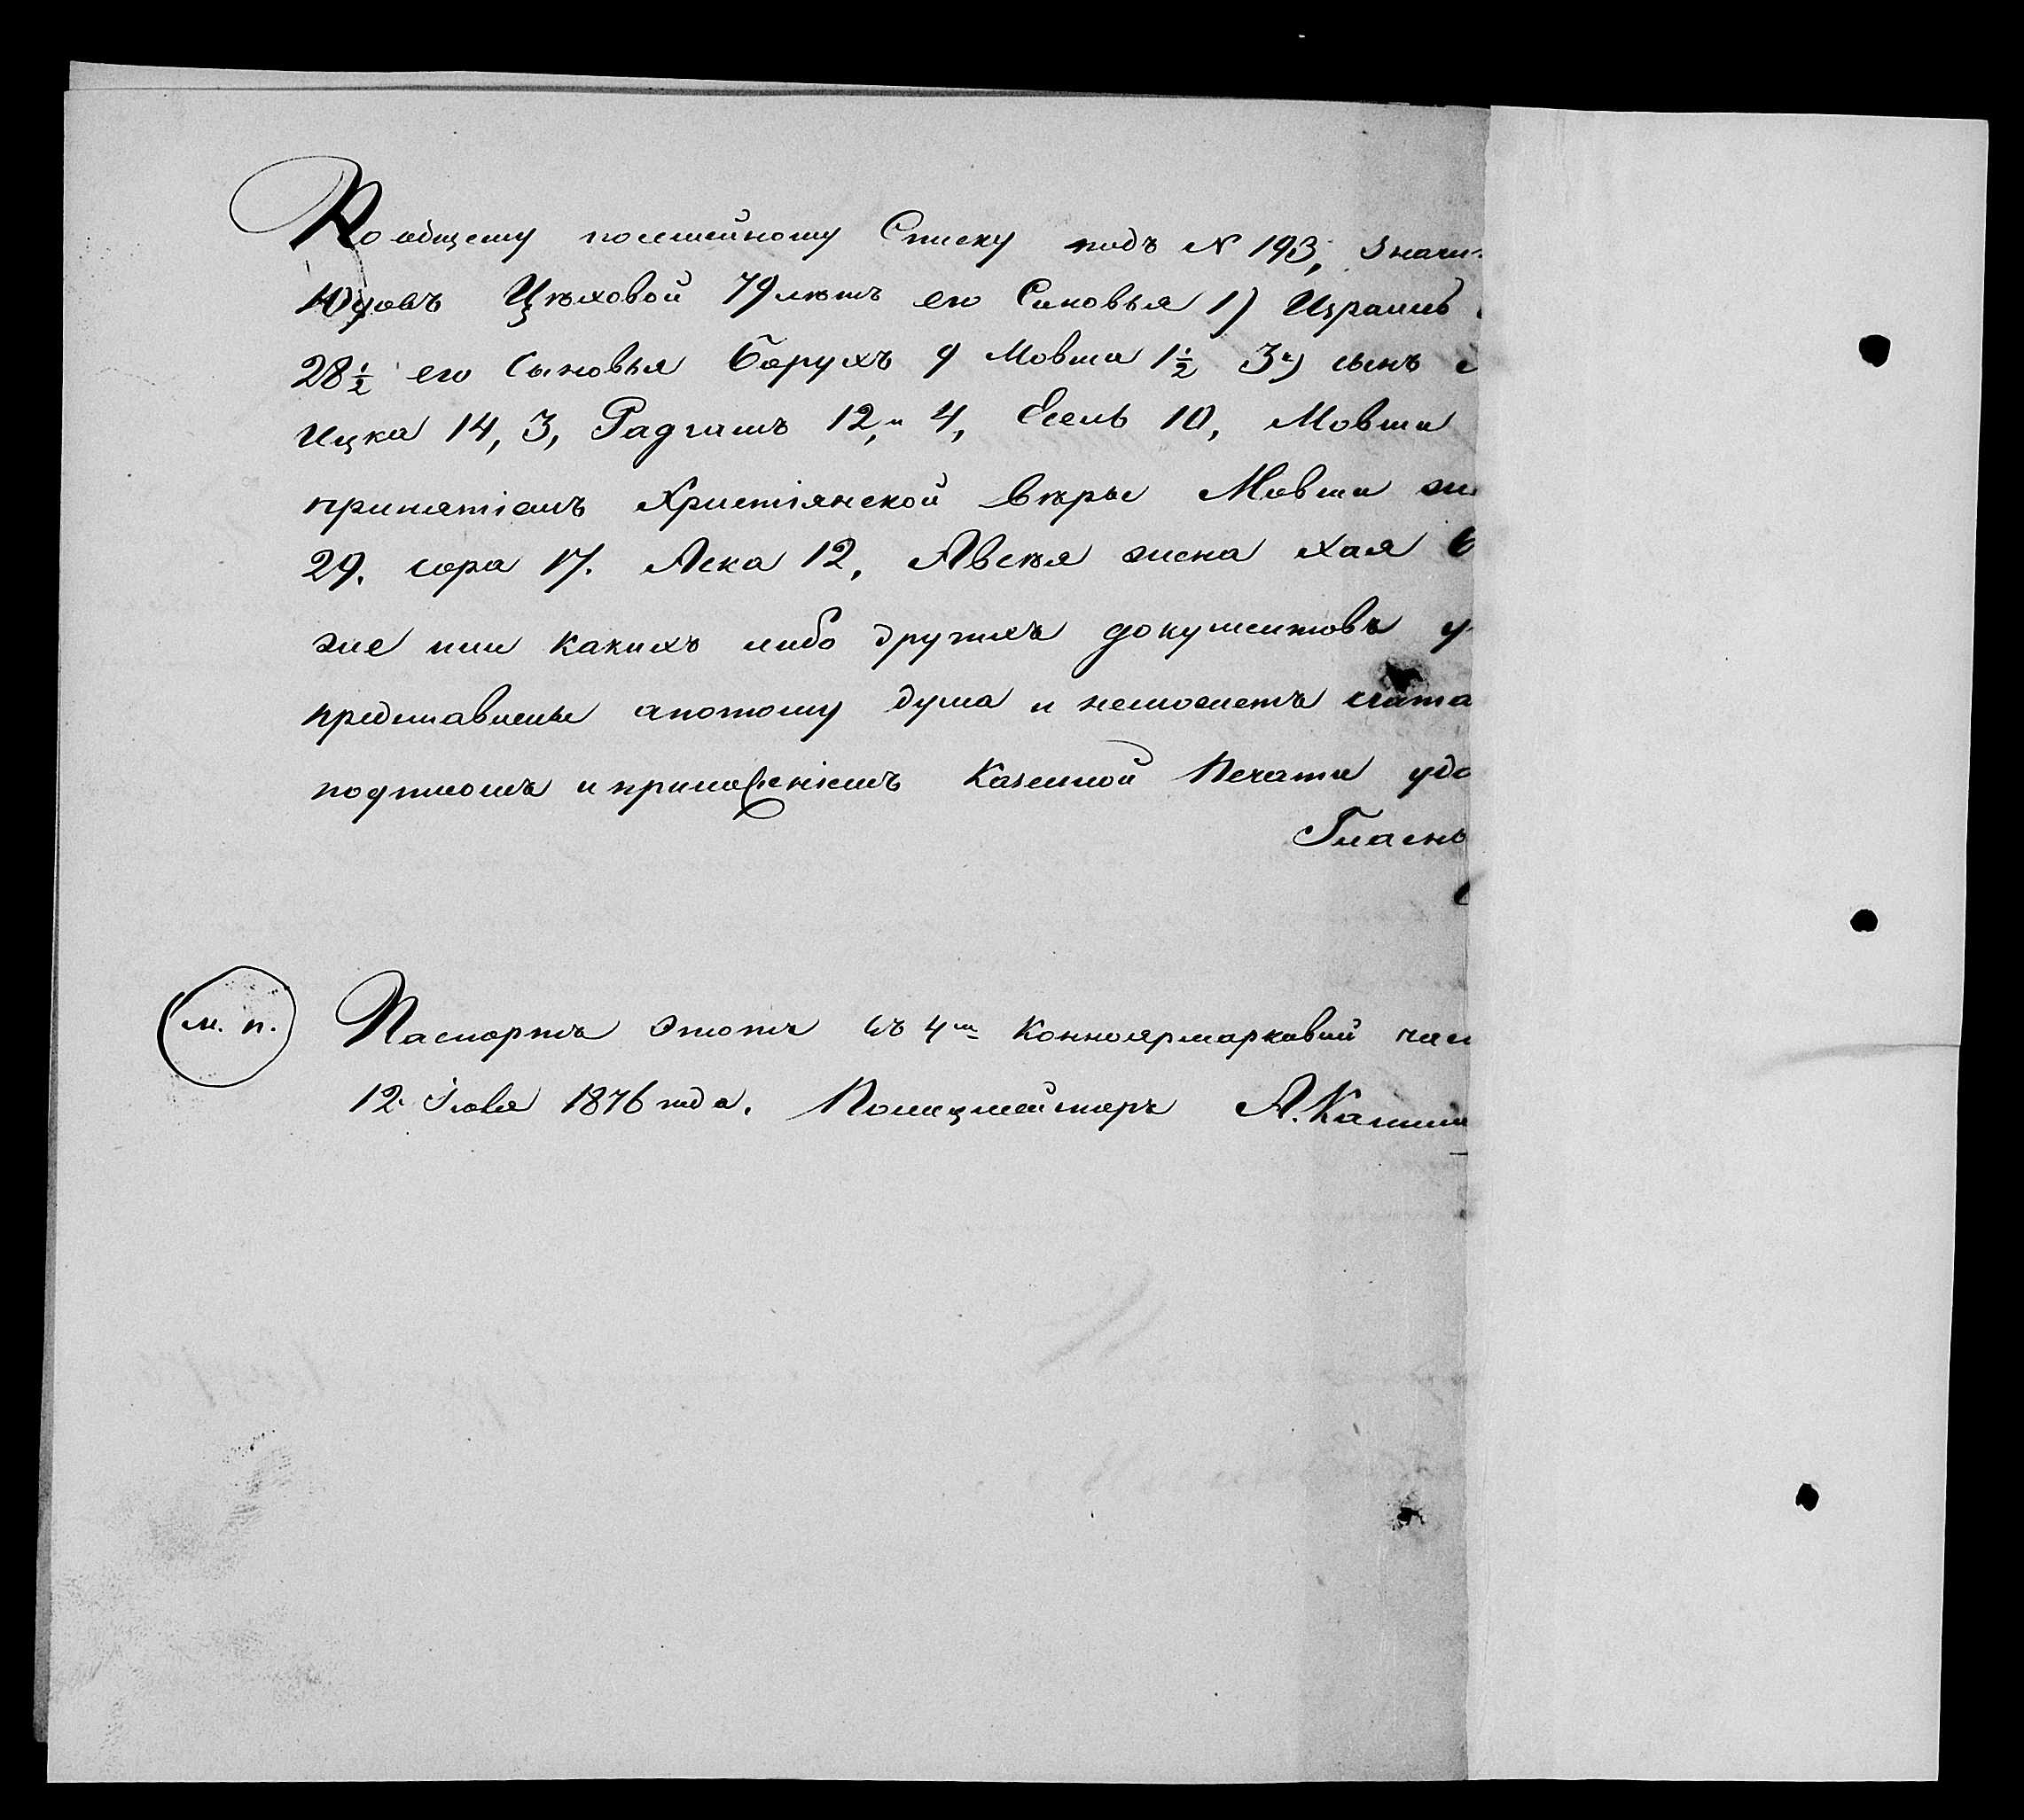 По общему посемейному Списку подъ N 193, значи
Юдовъ Цѣховой 79 лѣтъ его Сыновья 1) Израиль
28½ его Сыновья Борухъ 9 Мовша 1½ 3й) сынъ
Ицка 14, 3, 12, и 4, Есель 10, Мовша
принятіемъ Христіянской Вѣры Мовши же
29. сора 17. Аска 12, Авсѣя жена хая
же или какихъ либо другихъ документовъ у
представлены апотому дума и неможетъ счита
подписомъ и приложеніемъ Казенной Печати удо
Гласны
м. п. Паспортъ Этотъ въ 4й Конноярмарковий час
12 Іюля 1876 года. Полицмейстеръ А. Каши